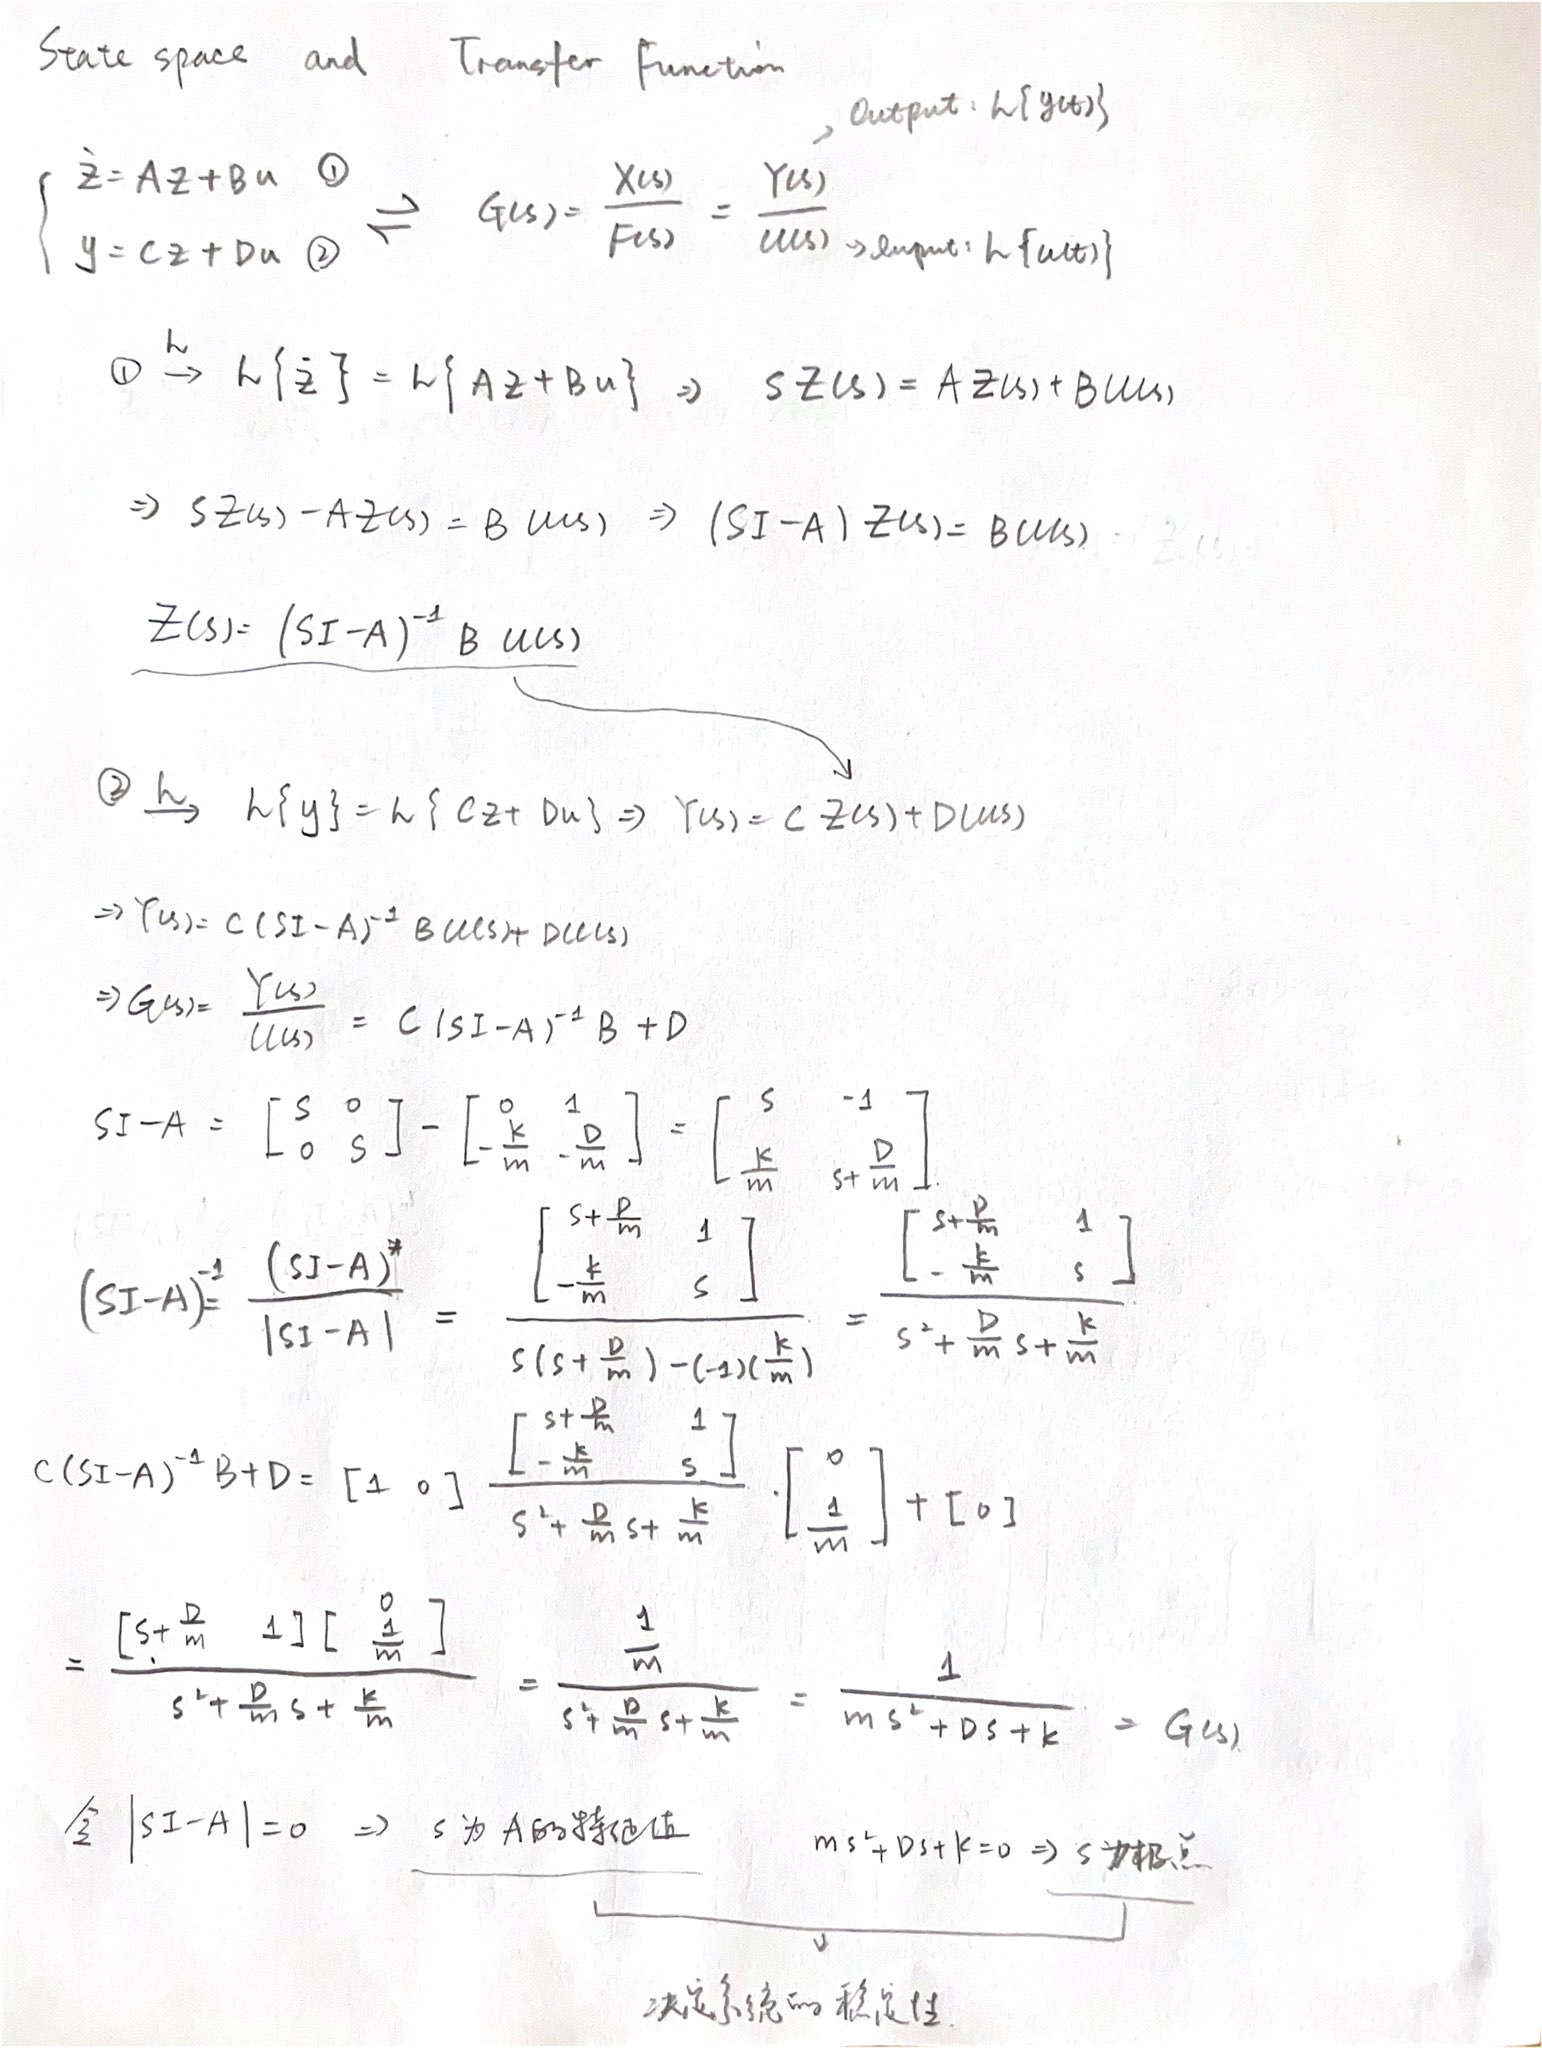 State space and Transfer function
Output: L{y(t)}
ż = Az + Bu ① ⇌ G(s) = X(s)/F(s) = Y(s)/U(s)
y = Cz + Du ② → Input: L{u(t)}
① →L L{ż} = L{Az + Bu} ⇒ SZ(s) = AZ(s) + BU(s)
⇒ SZ(s) - AZ(s) = BU(s) ⇒ (SI-A)Z(s) = BU(s)
Z(s) = (SI-A)⁻¹ B U(s)
② →L L{y} = L{Cz + Du} ⇒ Y(s) = C Z(s) + DU(s)
⇒ Y(s) = C(SI-A)⁻¹ BU(s) + DU(s)
⇒ G(s) = Y(s)/U(s) = C(SI-A)⁻¹B + D
SI-A = [S 0; 0 S] - [0 1; -k/m -D/m] = [S -1; k/m S+D/m]
(SI-A)⁻¹ = (SI-A)*/|SI-A| = [S+D/m 1; -k/m S]/(S(S+D/m)-(-1)(k/m)) = [S+D/m 1; -k/m S]/(S²+D/m S+k/m)
C(SI-A)⁻¹B+D = [1 0] [S+D/m 1; -k/m S]/(S²+D/m S+k/m) · [0; 1/m] + [0]
= [S+D/m 1][0; 1/m]/(S²+D/m S+k/m) = (1/m)/(S²+D/m S+k/m) = 1/(mS²+DS+k) = G(s)
令 |SI-A|=0 ⇒ S为A的特征值 mS²+DS+k=0 ⇒ S为极点
决定系统的稳定性.